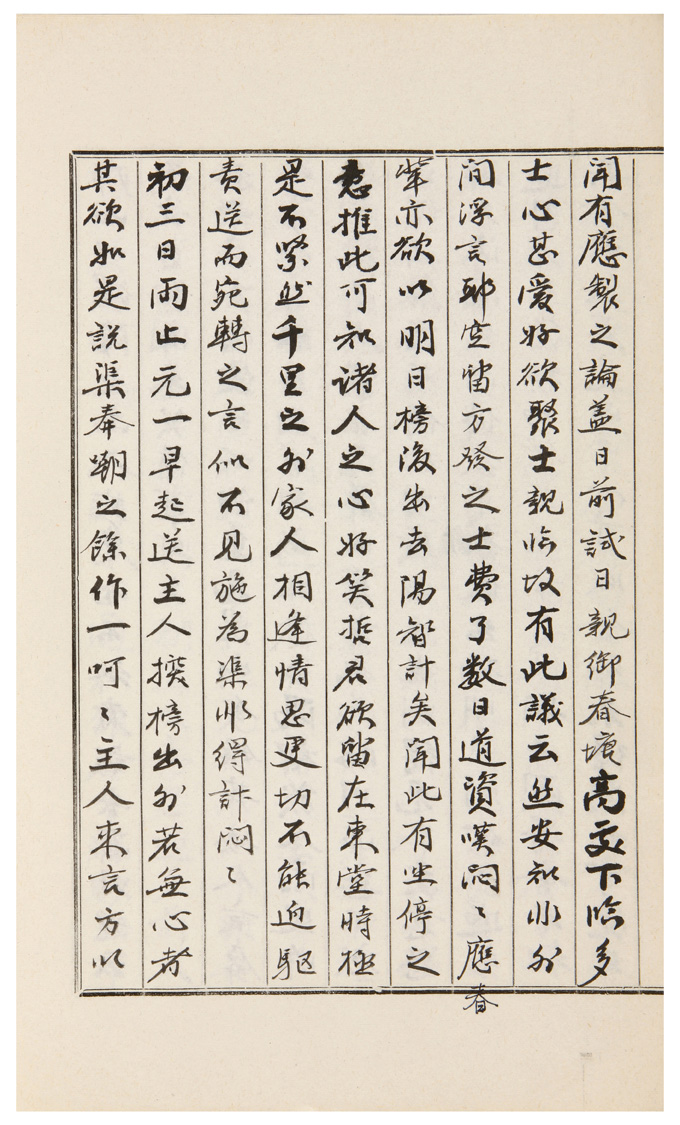 聞有應製之論盖日前試日親御春塘高處下臨多
士心甚愛好欲聚士親臨故有此議云然安知非外
間浮言耶空留方發之士費了數日道資嘆悶〻應春
輩亦欲以明日榜後出去陽智計矣聞此有坐停之
意推此可知諸人之心好笑哲君欲留在東堂時極
是不緊然千里之外家人相逢情思更切不能迫驅
責送而宛轉之言似不見施為渠非得計悶〻
初三日雨止元一早起送主人探榜出外若無心者
其欲如是說渠奉嘲之餘作一呵〻主人來言方以